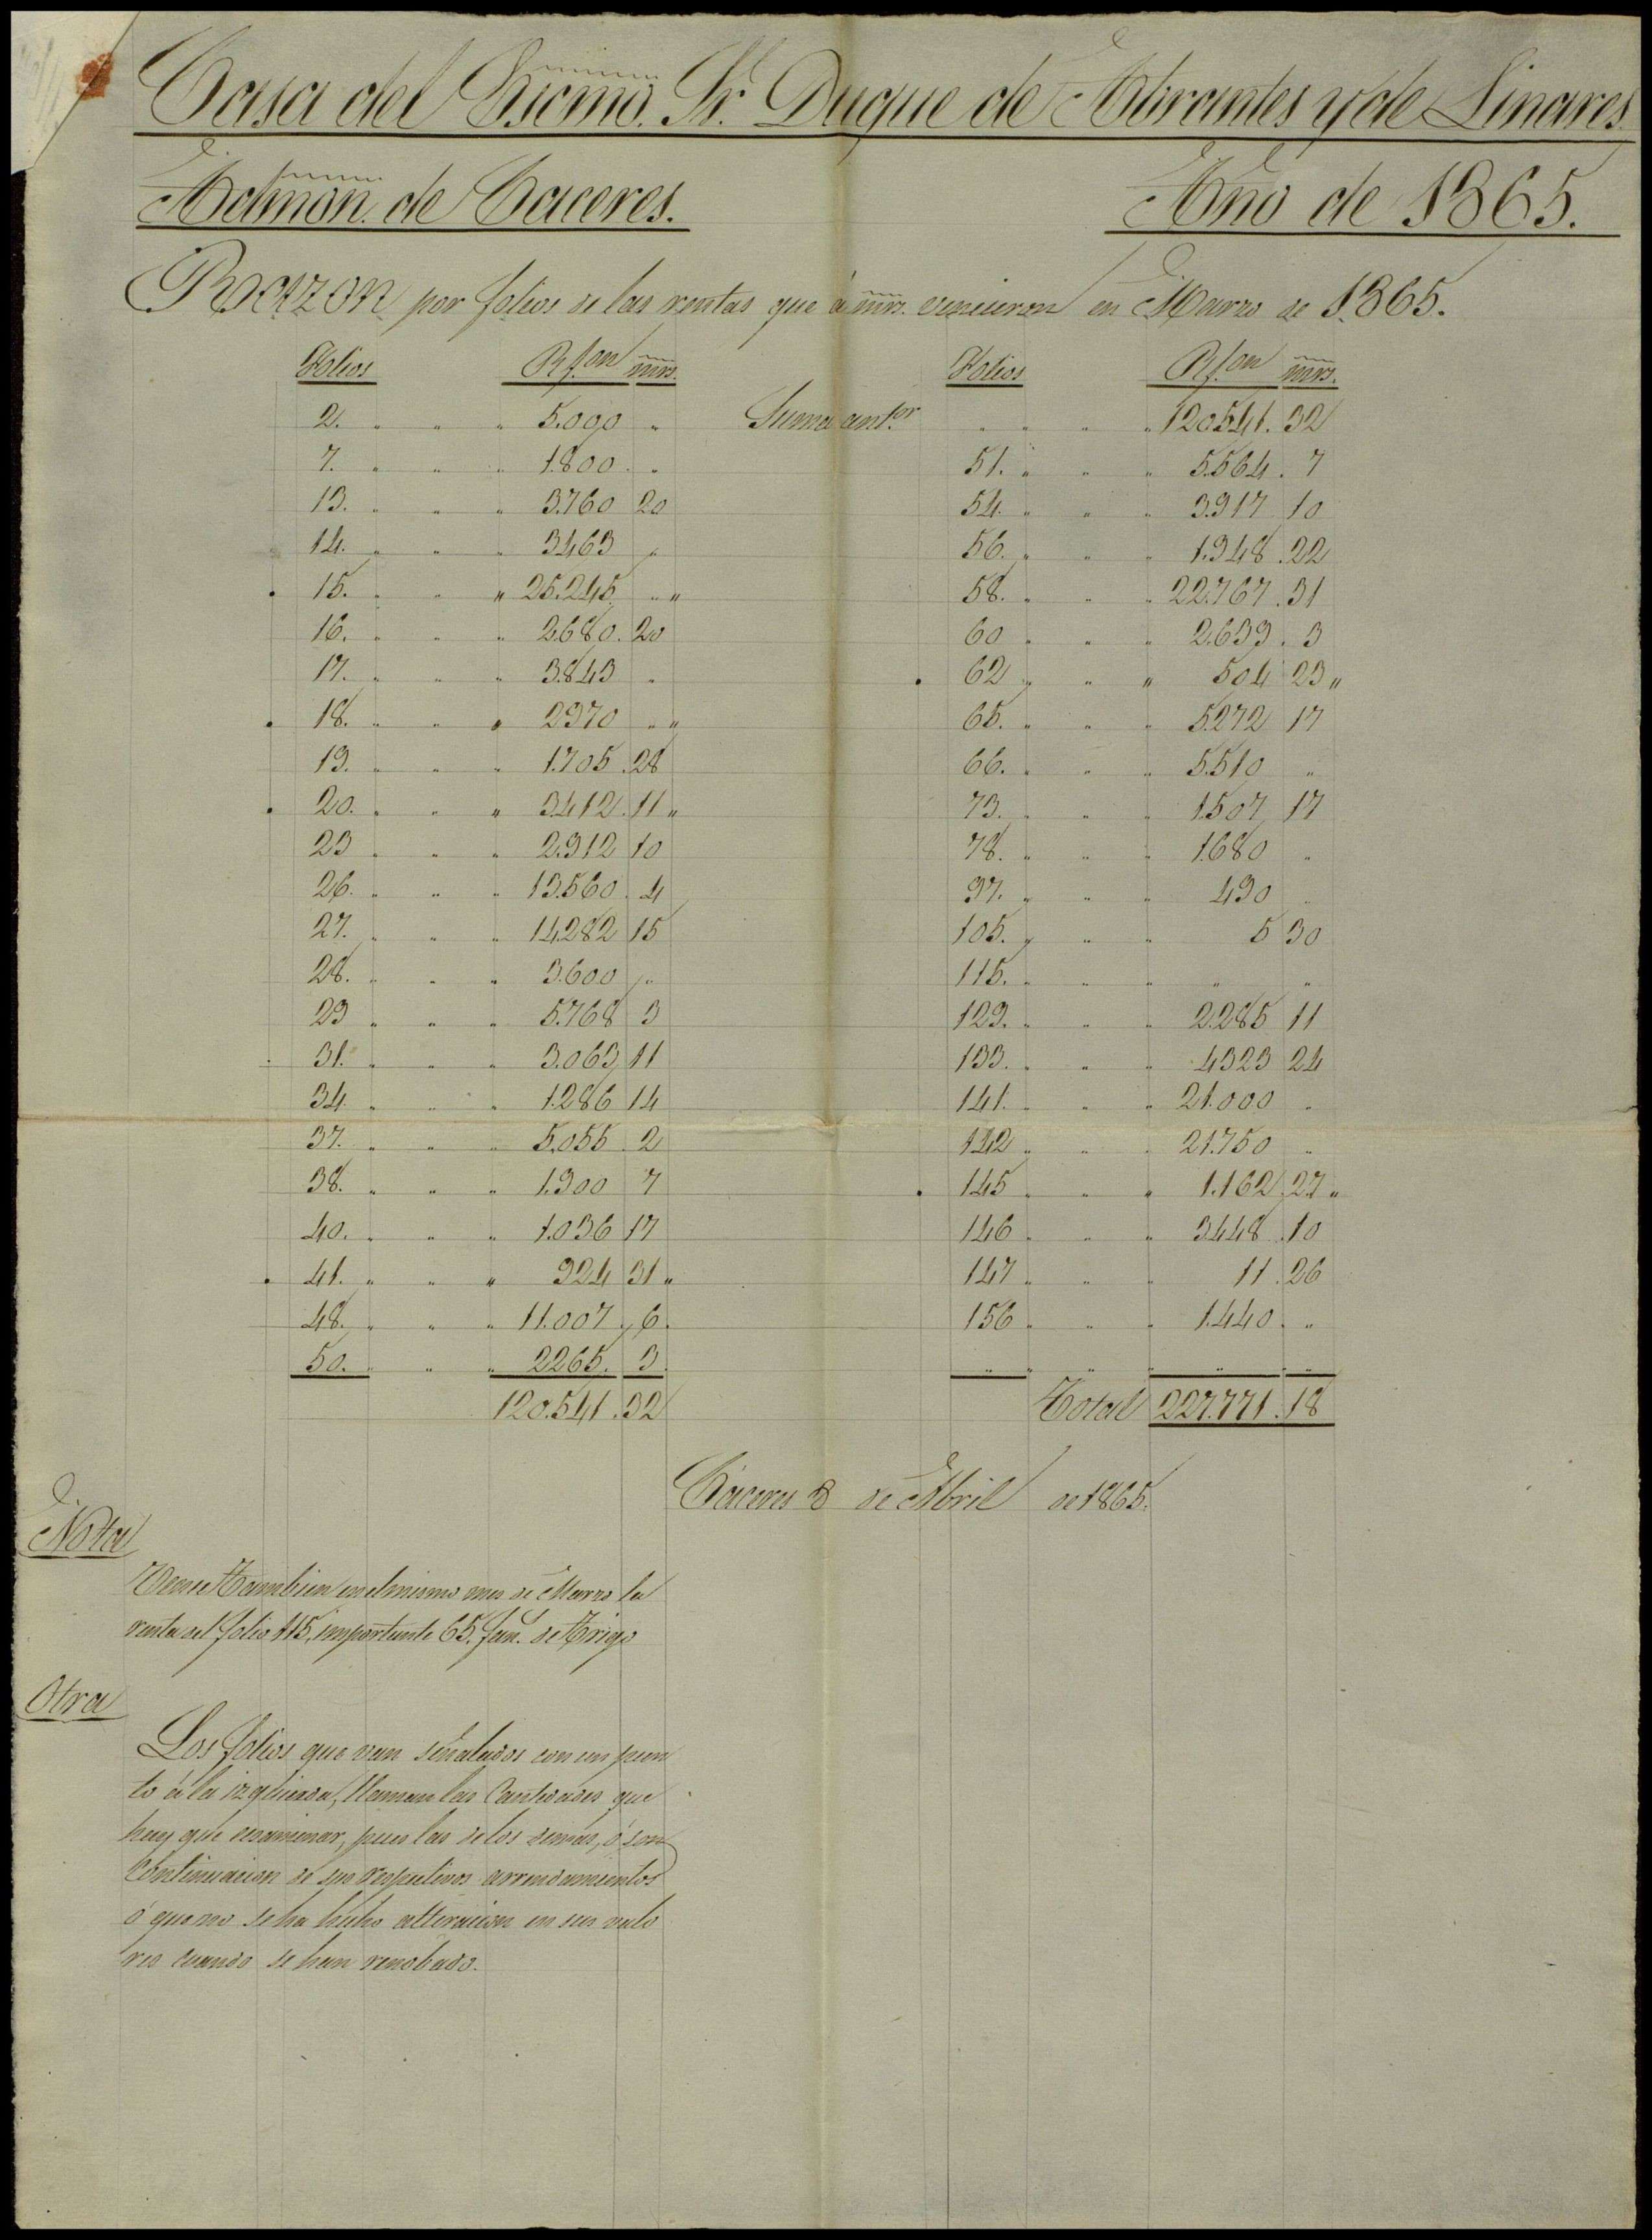 Casa del Excmo. Sr. Duque de Abrantes y de Linares
Admon. de Caceres. Año de 1865.
Razon por folios de las rentas que á mrs. vencieron en Marzo de 1865.
Folios Rs. on mrs.
2. " " " 5.000 "
7. " " " 1.800 "
13. " " " 3.760 20
14. " " " 3463 "
. 15. " " " 25.245 " "
16. " " " 2680. 20
17. " " " 3.843 "
. 18. " " " 2970 " "
19. " " " 1.705 28
. 20. " " " 3.412. 11 "
23 " " " 2.912 10
26. " " " 13.560. 4
27. " " " 14.282 15
28. " " " 3.600 "
29 " " " 5.768 3
31. " " " 3.063 11
34 " " " 1.286 14
37. " " " 5.055 2
38. " " " 1.300 7
40. " " " 1.036 17
. 41. " " " 924 31 "
48. " " " 11.007 6
50. " " " 2265. 3
120.541. 32
Folios Rs. on mrs.
Suma antor. " " " " 120.541. 32
51. " " " 5.564. 7
54. " " " 3.917 10
56. " " " 1.948. 22
58. " " " 22.767. 31
60 " " " 2.639. 3
. 62 " " " 504 23 "
65. " " " 5.272 17
66. " " " 5.510 "
73. " " " 1.507 17
78. " " " 1.680 "
97. " " " 430 "
105. " " " 5 30
115. " " " " "
129. " " " 2.285 11
133. " " " 4323 24
141. " " " 21.000 "
142 " " " 21.750 "
. 145 " " " 1.162 27 "
146 " " " 3.448. 10
147 " " " 11. 26
156 " " " 1.440 "
" " " " " "
Total 227.771. 18
Cáceres 8 de Abril de 1865.
Nota
Vence tambien en el mismo mes de Marzo la
renta del folio 115, importante 65. fan. de Trigo
Otra
Los folios que van señalados con un pun
to á la izquierda, llaman las Cantidades que
hay que examinar, pues las de los demas, ó son
Continuacion de sus respectivos arrendamientos
ó que no se ha hecho alteracion en sus valo
res cuando se han renobado.